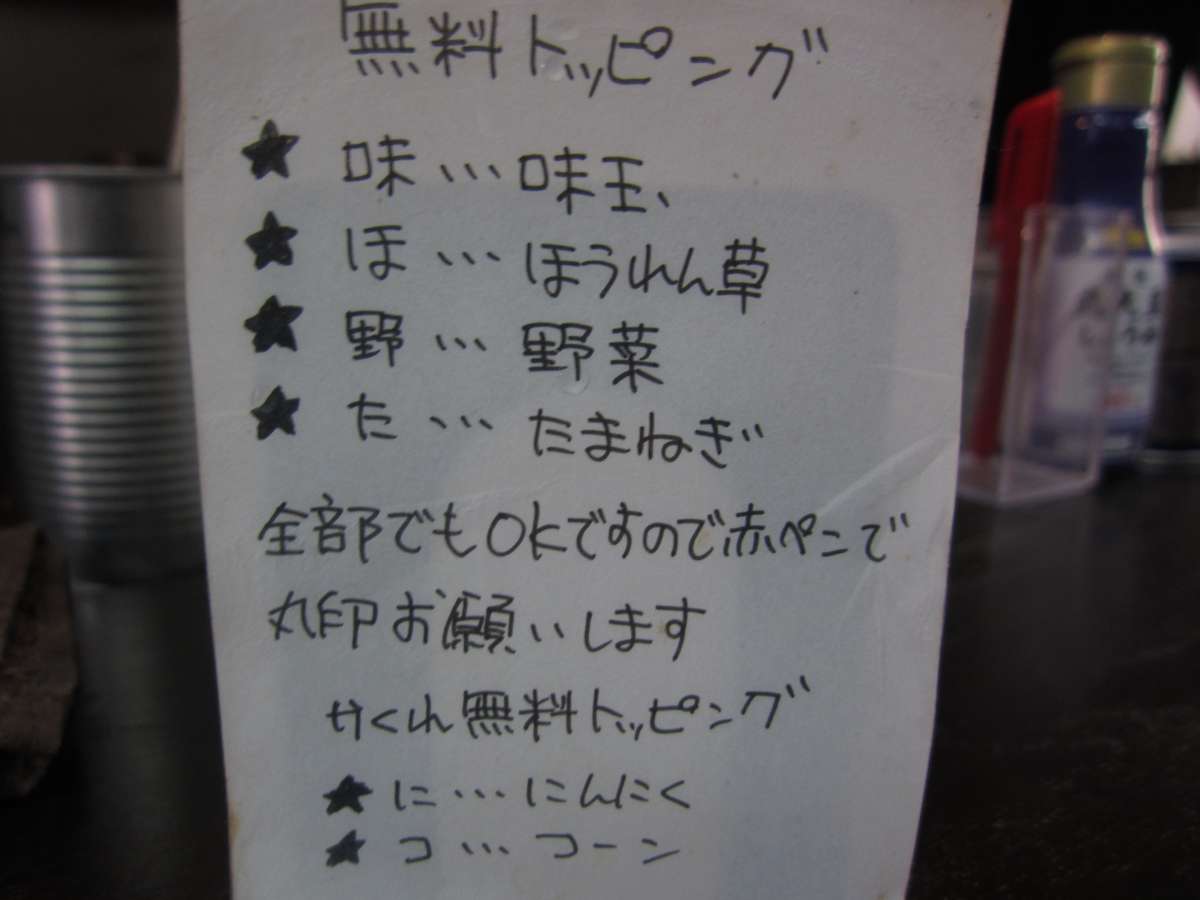 無料トッピング
★ 味…味玉、
★ ほ…ほうれん草
★ 野…野菜
★ た…たまねぎ
全部でもOKですので赤ペンで
丸印お願いします
かくれ無料トッピング
★ に…にんにく
★ コ…コーン